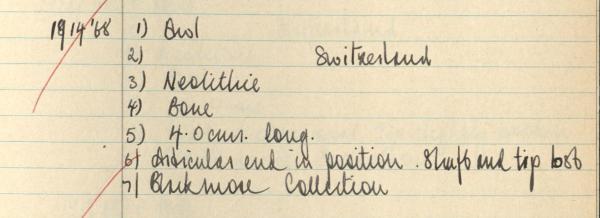 1914'68 1) Awl
2) Switzerland
3) Neolithic
4) Bone
5) 4.0 cms. long.
6) Articular end in position. Shaft and tip lost
7) Blackmore Collection